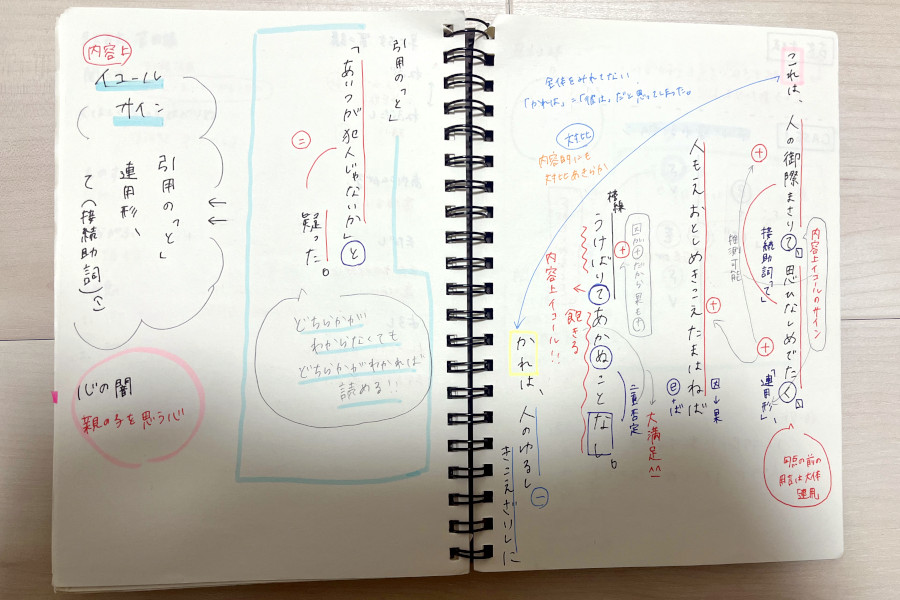 これは、人の御際まさりて、思ひなしめでたく、
内容上イコールのサイン
+
接続助詞「て」
+
「連用形、」
推測可能
句点の前の
用言は大体
連用
人もえおとしめきこえたまはねば
+
因→果
已+ば
うけばりてあかぬことなし。
接続
+
因が+だから果も+
飽きる
二重否定
大満足^^
内容上イコール!!
全体をみれてない
「かれは」=「彼は」だと思ってしまった。
対比
内容的にも
対比あきらか
かれは、人のゆるし
きこえざりしに
−
引用の「と」
「あいつが犯人じゃないか」と
=
疑った。
どちらかが
わからなくても
どちらかがわかれば
読める!!
内容上
イコール
サイン
引用の「と」
連用形、
て(接続助詞)
心の闇
親の子を思う心